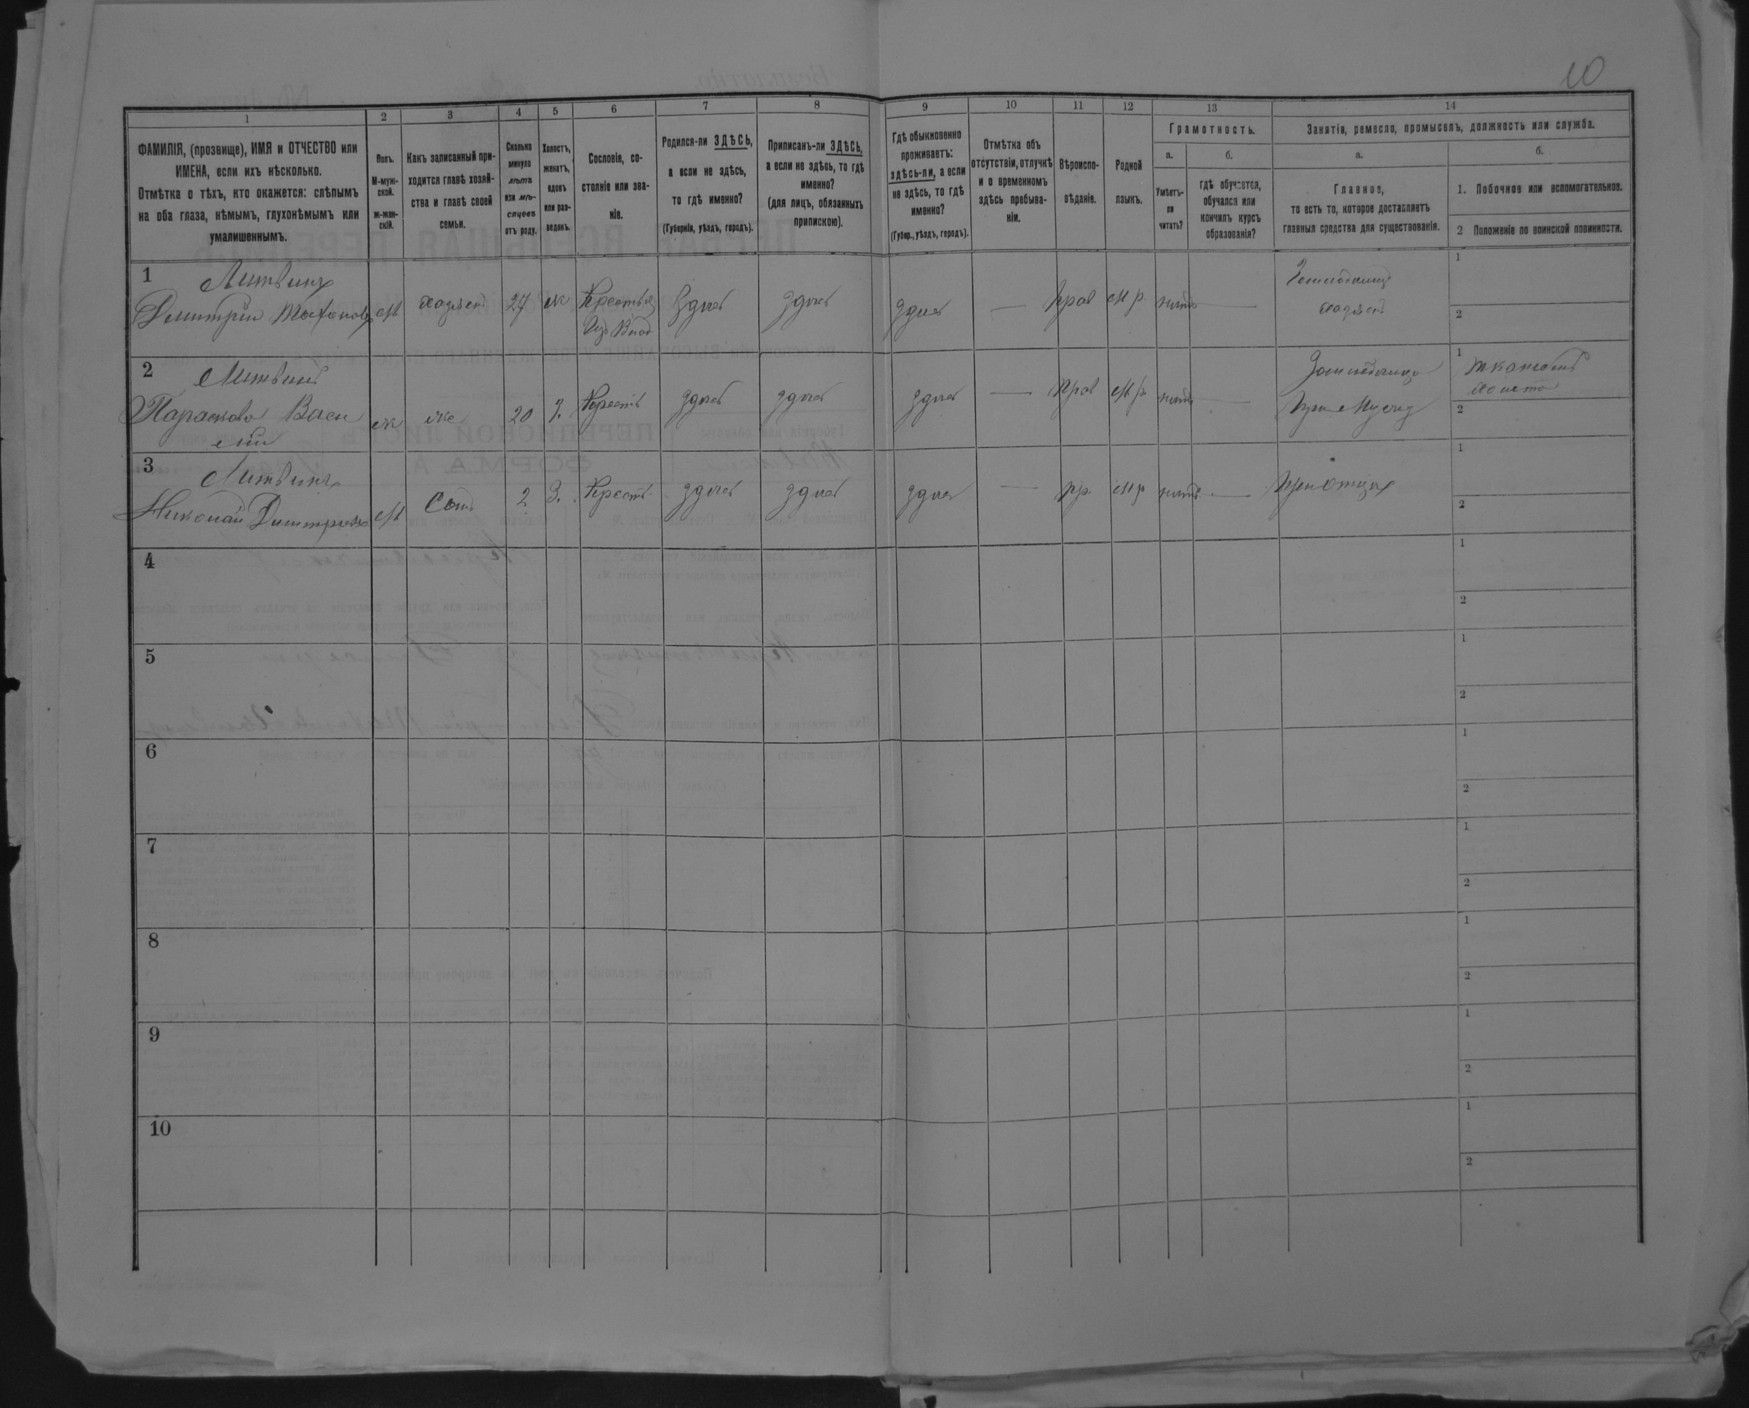 10
1
2
3
4
5
6
7
8
9
10
11
12
13
14
ФАМИЛІЯ, (прозвище), ИМЯ и ОТЧЕСТВО или
ИМЕНА, если ихъ нѣсколько.
Отмѣтка о тѣхъ, кто окажется: слѣпымъ
на оба глаза, нѣмымъ, глухонѣмымъ или
умалишеннымъ.
Полъ.
М-муж-
ской.
ж-жен-
скій.
Какъ записанный при-
ходится главѣ хозяй-
ства и главѣ своей
семьи.
Сколько
минуло
лѣтъ
или мѣ-
сяцевъ
отъ роду.
Холостъ,
женатъ,
вдовъ
или раз-
веденъ.
Сословіе, со-
стояніе или зва-
ніе.
Родился-ли ЗДѢСЬ,
а если не здѣсь,
то гдѣ именно?
(Губернія, уѣздъ, городъ).
Приписанъ-ли ЗДѢСЬ,
а если не здѣсь, то гдѣ
именно?
(для лицъ, обязанныхъ
припискою).
Гдѣ обыкновенно
проживаетъ:
здѣсь-ли, а если
не здѣсь, то гдѣ
именно?
(Губер., уѣздъ, городъ).
Отмѣтка объ
отсутствіи, отлучкѣ
и о временномъ
здѣсь пребыва-
ніи.
Вѣроиспо-
вѣданіе.
Родной
языкъ.
Грамотность.
а.
Умѣетъ-
ли
читать?
б.
гдѣ обучается,
обучался или
кончилъ курсъ
образованія?
Занятія, ремесло, промыселъ, должность или служба.
а.
Главное,
то есть то, которое доставляетъ
главныя средства для существованія.
б.
1. Побочное или вспомогательное.
2 Положеніе по воинской повинности.
1
Литвинъ
Дмитрій
М
хозяинъ
27
ж
Здѣсь
здѣсь
здѣсь
—
прав
м р.
нѣтъ
—
хозяинъ
1
2
2
Литвинъ
Параскова Васи
ж
20
З.
Крестъ
здѣсь
здѣсь
здѣсь
—
прав
м р
нѣтъ
—
при мужѣ
1
2
3
Литвинъ
Николай Дмитріевъ
М
Сынъ
2
Крестъ
здѣсь
здѣсь
здѣсь
—
пр.
м р
нѣтъ
—
при отцѣ
1
2
4
1
2
5
1
2
6
1
2
7
1
2
8
1
2
9
1
2
10
1
2